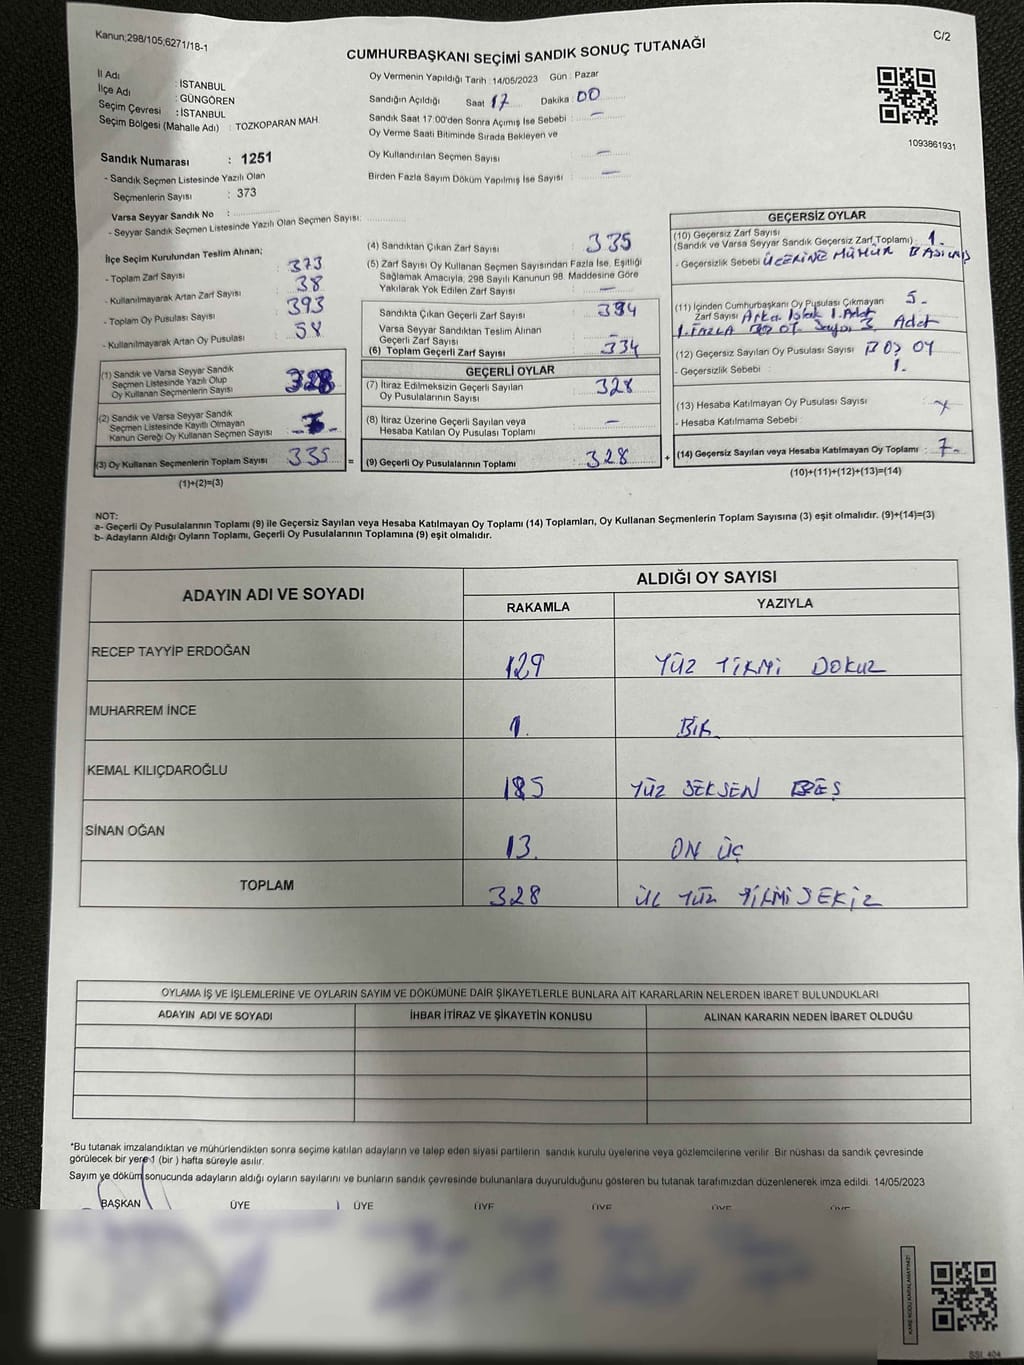 Kanun;298/105;6271/18-1
C/2
CUMHURBAŞKANI SEÇİMİ SANDIK SONUÇ TUTANAĞI
İl Adı : İSTANBUL
İlçe Adı : GÜNGÖREN
Seçim Çevresi : İSTANBUL
Seçim Bölgesi (Mahalle Adı) : TOZKOPARAN MAH.
Oy Vermenin Yapıldığı Tarih : 14/05/2023 Gün : Pazar
Sandığın Açıldığı Saat 17 Dakika : 00
Sandık Saat 17:00'den Sonra Açımış İse Sebebi : —
Oy Verme Saati Bitiminde Sırada Bekleyen ve
Oy Kullandırılan Seçmen Sayısı : —
Birden Fazla Sayım Döküm Yapılmış İse Sayısı : —
1093861931
Sandık Numarası : 1251
- Sandık Seçmen Listesinde Yazılı Olan
Seçmenlerin Sayısı : 373
Varsa Seyyar Sandık No :
- Seyyar Sandık Seçmen Listesinde Yazılı Olan Seçmen Sayısı:
İlçe Seçim Kurulundan Teslim Alınan;
- Toplam Zarf Sayısı : 373
- Kullanılmayarak Artan Zarf Sayısı : 38
- Toplam Oy Pusulası Sayısı : 393
- Kullanılmayarak Artan Oy Pusulası : 58
(1) Sandık ve Varsa Seyyar Sandık
Seçmen Listesinde Yazılı Olup
Oy Kullanan Seçmenlerin Sayısı : 328
(2) Sandık ve Varsa Seyyar Sandık
Seçmen Listesinde Kayıtlı Olmayan
Kanun Gereği Oy Kullanan Seçmen Sayısı
(3) Oy Kullanan Seçmenlerin Toplam Sayısı : 335 =
(1)+(2)=(3)
(4) Sandıktan Çıkan Zarf Sayısı : 335
(5) Zarf Sayısı Oy Kullanan Seçmen Sayısından Fazla İse, Eşitliği
Sağlamak Amacıyla, 298 Sayılı Kanunun 98. Maddesine Göre
Yakılarak Yok Edilen Zarf Sayısı : —
Sandıkta Çıkan Geçerli Zarf Sayısı : 334
Varsa Seyyar Sandıktan Teslim Alınan
Geçerli Zarf Sayısı : —
(6) Toplam Geçerli Zarf Sayısı : 334
GEÇERLİ OYLAR
(7) İtiraz Edilmeksizin Geçerli Sayılan
Oy Pusulalarının Sayısı : 328
(8) İtiraz Üzerine Geçerli Sayılan veya
Hesaba Katılan Oy Pusulası Toplamı : —
(9) Geçerli Oy Pusulalarının Toplamı : 328 +
GEÇERSİZ OYLAR
(10) Geçersiz Zarf Sayısı
(Sandık ve Varsa Seyyar Sandık Geçersiz Zarf Toplamı) : 1.
- Geçersizlik Sebebi : ÜZERİNE MÜHÜR BASILMIŞ
(11) İçinden Cumhurbaşkanı Oy Pusulası Çıkmayan : 5.
Zarf Sayısı 1. Adet
1. FAZLA 3 Adet
(12) Geçersiz Sayılan Oy Pusulası Sayısı : BOŞ OY
- Geçersizlik Sebebi : 1.
(13) Hesaba Katılmayan Oy Pusulası Sayısı :
- Hesaba Katılmama Sebebi :
(14) Geçersiz Sayılan veya Hesaba Katılmayan Oy Toplamı : 7.
(10)+(11)+(12)+(13)=(14)
NOT:
a- Geçerli Oy Pusulalarının Toplamı (9) ile Geçersiz Sayılan veya Hesaba Katılmayan Oy Toplamı (14) Toplamları, Oy Kullanan Seçmenlerin Toplam Sayısına (3) eşit olmalıdır. (9)+(14)=(3)
b- Adayların Aldığı Oyların Toplamı, Geçerli Oy Pusulalarının Toplamına (9) eşit olmalıdır.
ADAYIN ADI VE SOYADI
ALDIĞI OY SAYISI
RAKAMLA YAZIYLA
RECEP TAYYİP ERDOĞAN 129 YÜZ YİRMİ DOKUZ
MUHARREM İNCE 1. BİR
KEMAL KILIÇDAROĞLU 185 YÜZ SEKSEN BEŞ
SİNAN OĞAN 13. ON ÜÇ
TOPLAM 328 ÜÇ YÜZ YİRMİ SEKİZ
OYLAMA İŞ VE İŞLEMLERİNE VE OYLARIN SAYIM VE DÖKÜMÜNE DAİR ŞİKAYETLERLE BUNLARA AİT KARARLARIN NELERDEN İBARET BULUNDUKLARI
ADAYIN ADI VE SOYADI İHBAR İTİRAZ VE ŞİKAYETİN KONUSU ALINAN KARARIN NEDEN İBARET OLDUĞU
*Bu tutanak imzalandıktan ve mühürlendikten sonra seçime katılan adayların ve talep eden siyasi partilerin sandık kurulu üyelerine veya gözlemcilerine verilir. Bir nüshası da sandık çevresinde
görülecek bir yere 1 (bir ) hafta süreyle asılır.
Sayım ve döküm sonucunda adayların aldığı oyların sayılarını ve bunların sandık çevresinde bulunanlara duyurulduğunu gösteren bu tutanak tarafımızdan düzenlenerek imza edildi. 14/05/2023
BAŞKAN ÜYE ÜYE ÜYE ÜYE ÜYE ÜYE
KARE KODU KARALAMAYINIZ!
SSİ_404